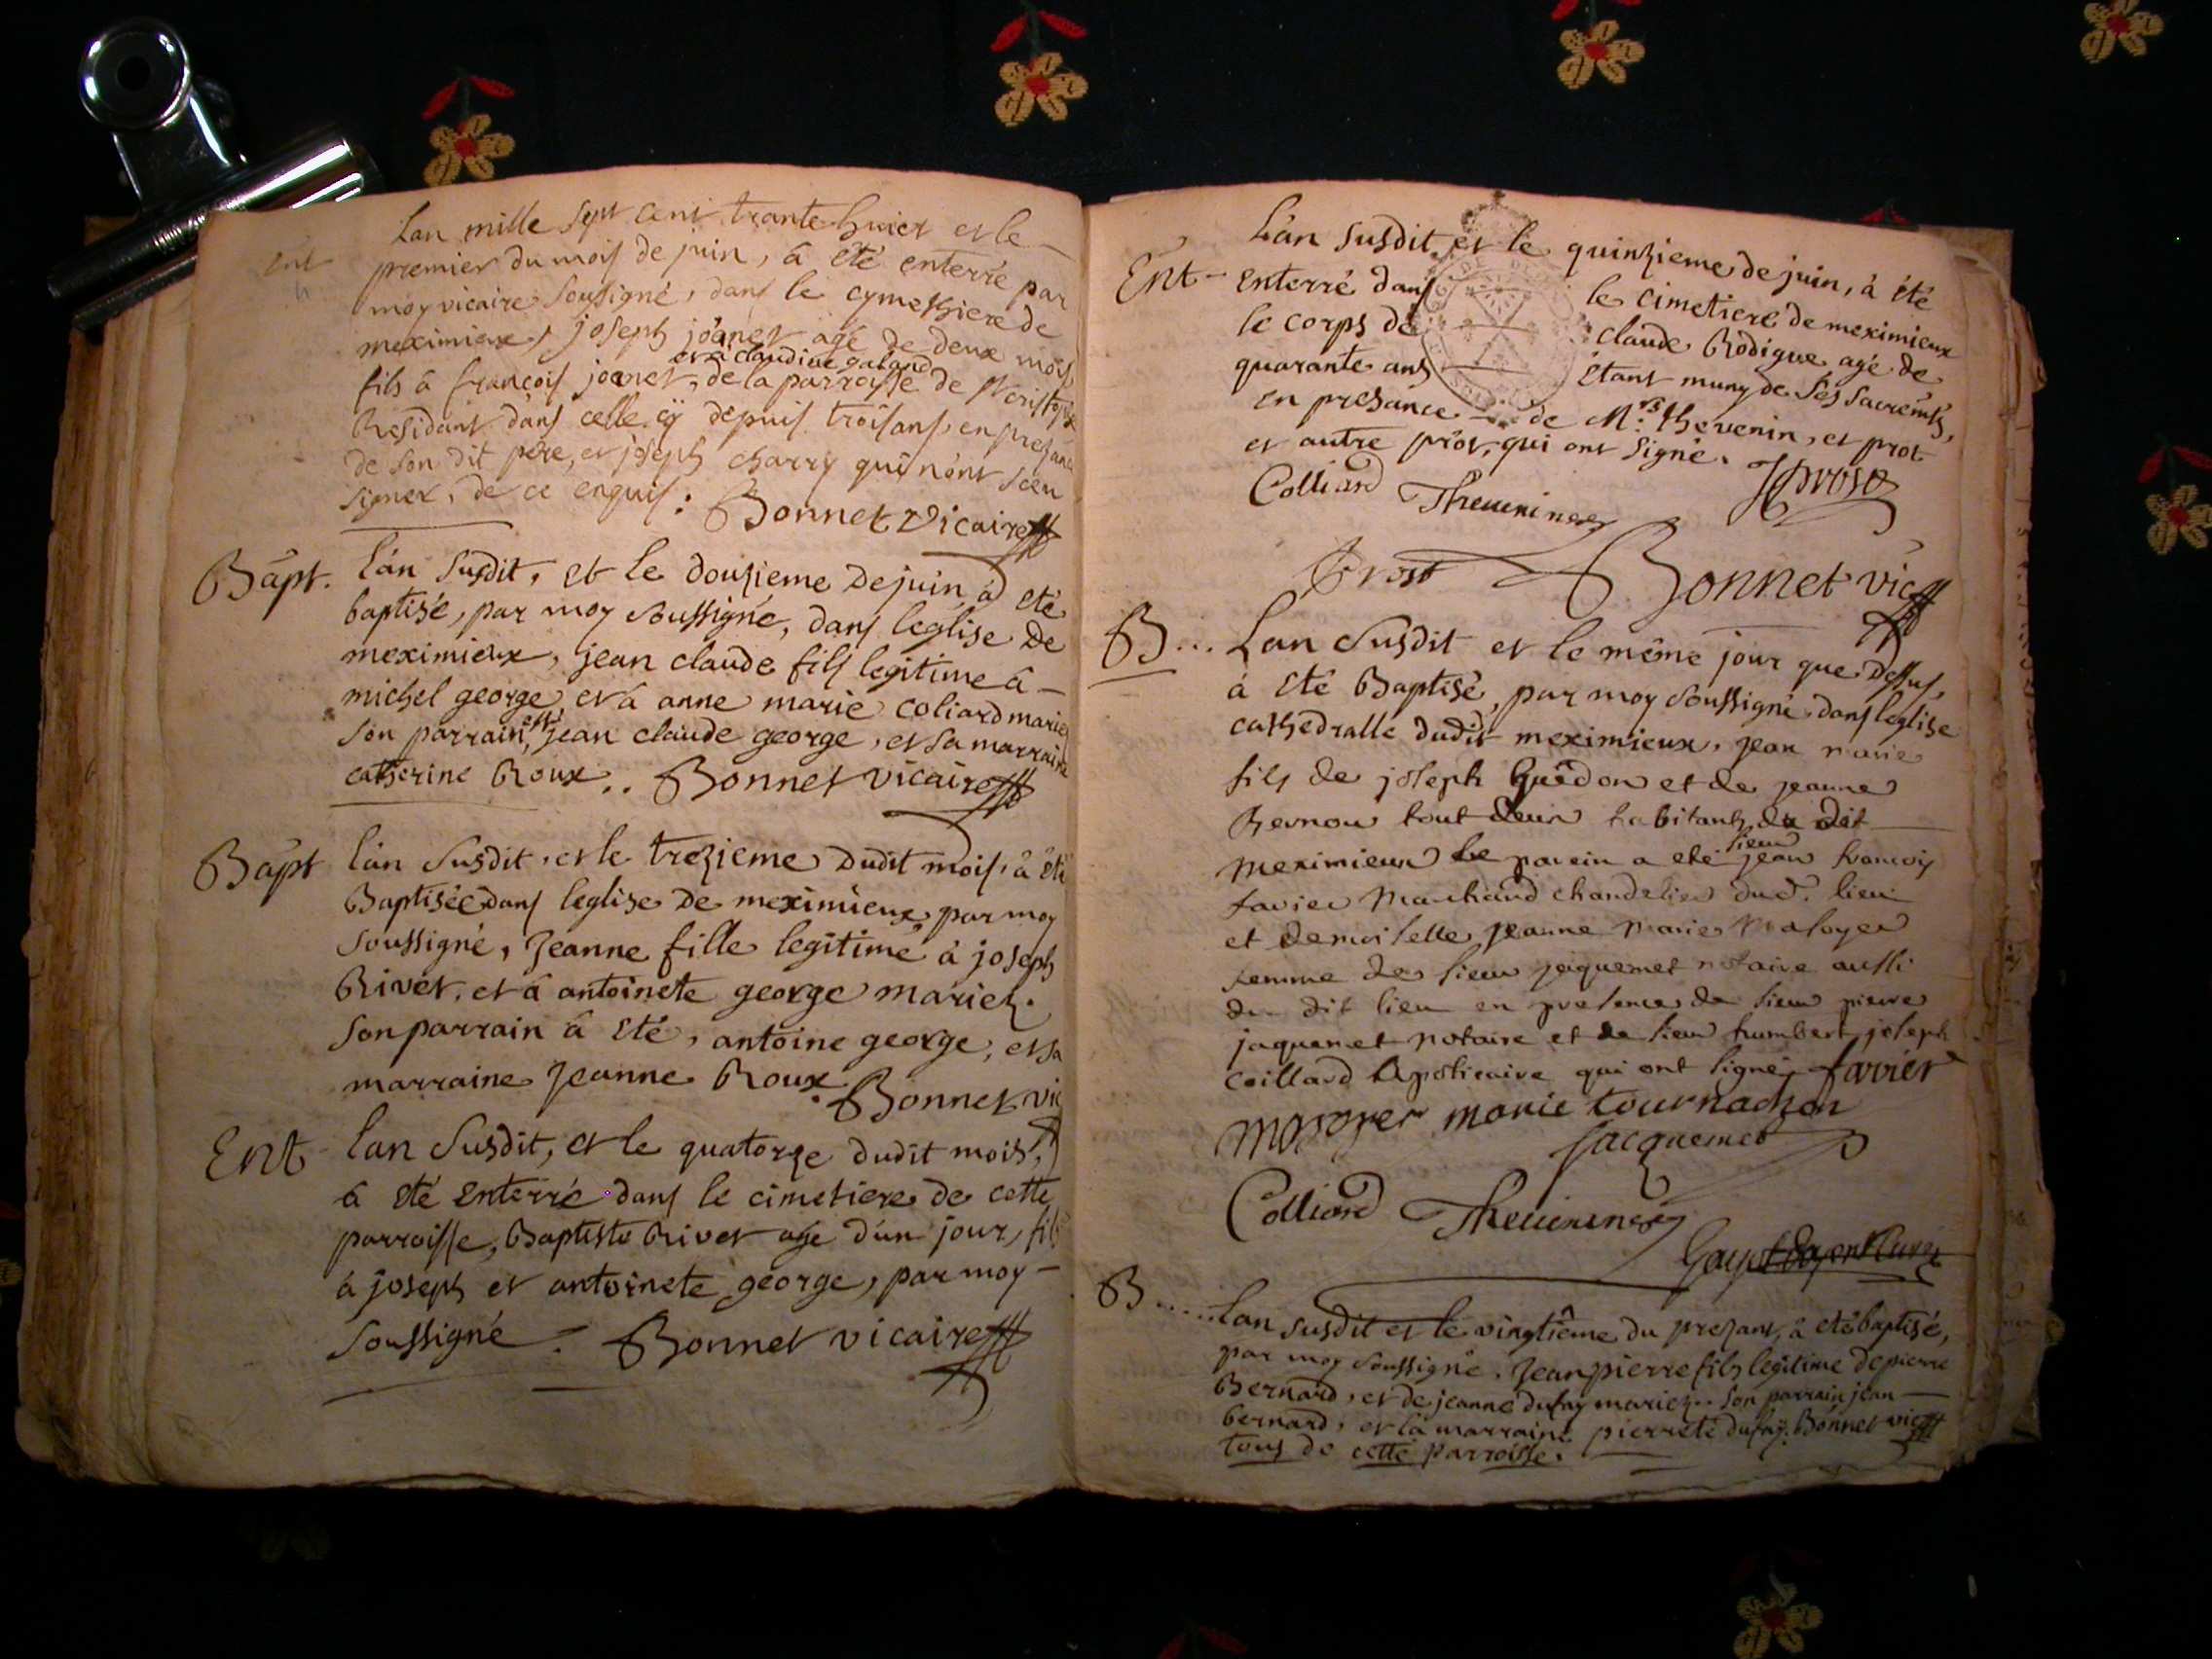 Ent
Lan mille sept cent trante huict et le
premier du mois de juin, â été enterré par
moy vicaire soussigné, dans le cymethiere de
meximieux, joseph joanet agé de deux mois
et à claudine galand
fils â françois joanet, de la parroisse de
Residant dans celle cy depuis trois ans, en presance
de son dit père, et joseph charry qui n'ont sceu
signer, de ce enquis: Bonnet vicaire
Bapt. l'an susdit, et le douzieme de juin à eté
baptisé, par moy soussigné, dans leglise de
meximieux, jean claude fils legitime â
michel george, et â anne marie coliard mariez
son parrain, est jean claude george, et sa marraine
catherine Roux.. Bonnet vicaire
Bapt l'an susdit, et le trezieme dudit mois, â été
Baptisée dans leglise de meximieux, par moy
soussigné, Jeanne fille legitime â joseph
Rivet, et â antoinete george mariez.
son parrain â eté, antoine george, et sa
marraine Jeanne Roux. Bonnet vic
Ent lan susdit, et le quatorze dudit mois,
â eté enterré dans le cimetiere de cette
parroisse, Baptiste Rivet agé d'un jour, fils
â joseph et antoinete george, par moy
soussigné. Bonnet vicaire
L'an susdit et le quinzieme de juin, à été
Ent enterré dans le cimetiere de meximieux
le corps de claude Rodigue agé de
quarante ans étant muny de ses sacremts,
en presance de Mrs. thevenin, et prot
et autre prôt, qui ont signé.
Colliard Thevenin Jprost
Prost Bonnet vic
B... Lan susdit et le même jour que dessus,
à eté Baptisé, par moy soussigné dans leglise
cathedralle dudit meximieux, jean marie
fils de joseph Guédon et de jeanne
Bernou tout deux habitants du dit
meximieux le parein a eté sieur jean francois
favier marchand chandelier dud. lieu
et demoiselle jeanne marie masoyer
femme de sieur jaquemet notaire aussi
du dit lieu en presence de sieur pierre
jaquemet notaire et de sieur humbert joseph
coillard Apoticaire qui ont signé favier
masoyer marie tournachon
jacquemet
Colliard Thevenin
B.... Lan susdit et le vingtième du prezant, à eté baptisé,
par moy soussigné, Jean pierre fils legitime de pierre
Bernard, et de jeanne dufay mariez.. son parrain jean
bernard, et la marraine pierrete dufay. Bonnet vic
tous de cette parroisse.